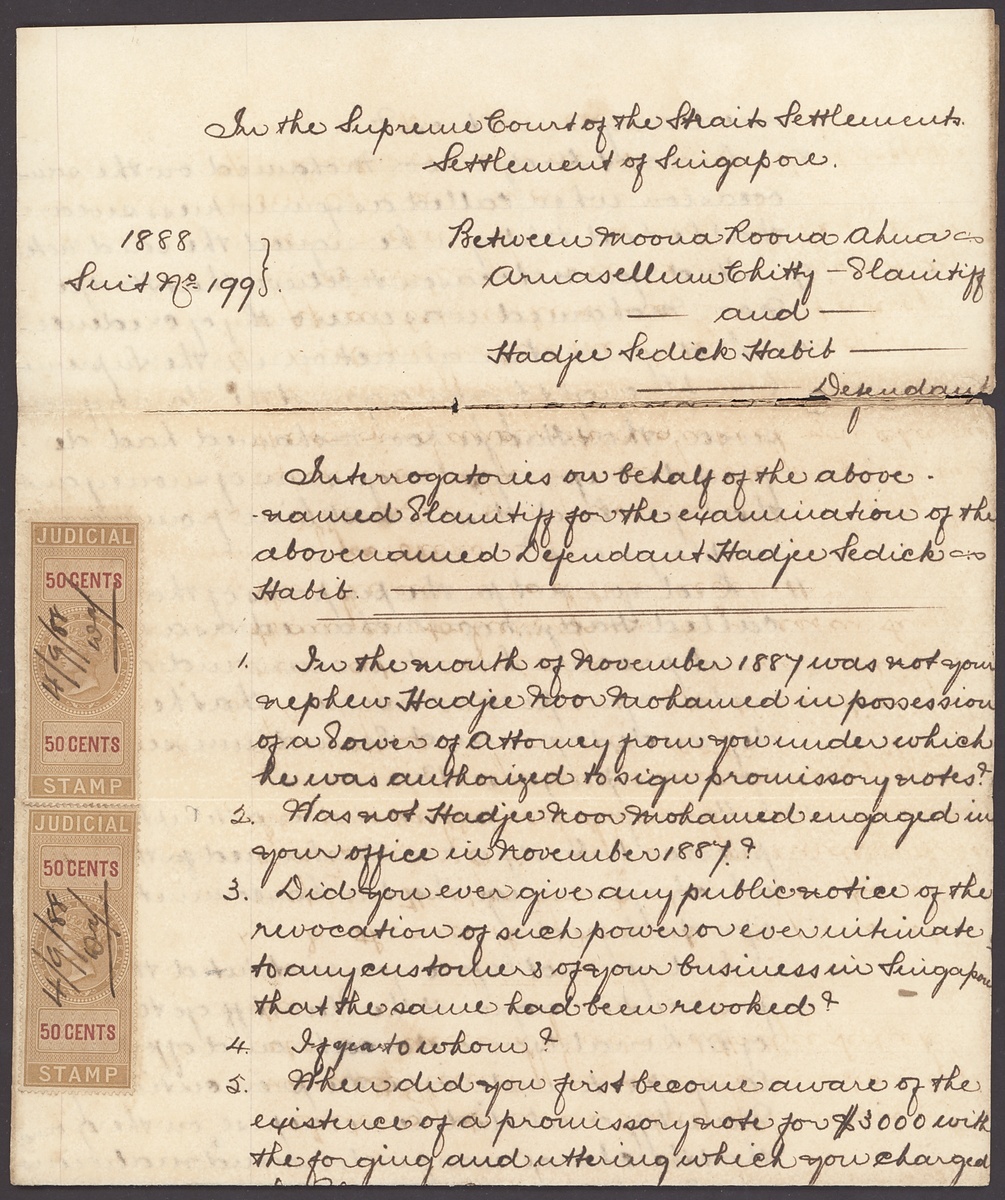 In the Supreme Court of the Straits Settlements.
Settlement of Singapore.
1888
Suit No. 199
Between Moona Roona Ahna
Arnasellum Chitty – Plaintiff
and
Hadjee Sedick Habib
Defendant
Interrogatories on behalf of the above-
-named Plaintiff for the examination of the
abovenamed Defendant Hadjee Sedick
Habib.
1. In the month of November 1887 was not your
nephew Hadjee Noor Mohamed in possession
of a Power of Attorney from you under which
he was authorized to sign promissory notes?
2. Was not Hadjee Noor Mohamed engaged in
your office in November 1887?
3. Did you ever give any public notice of the
revocation of such power or ever intimate
to any customers of your business in Singapore
that the same had been revoked?
4. If yea to whom?
5. When did you first become aware of the
existence of a promissory note for $3000 with
the forging and uttering which you charged
JUDICIAL
50 CENTS
4/9/88
50 CENTS
STAMP
JUDICIAL
50 CENTS
4/9/88
50 CENTS
STAMP